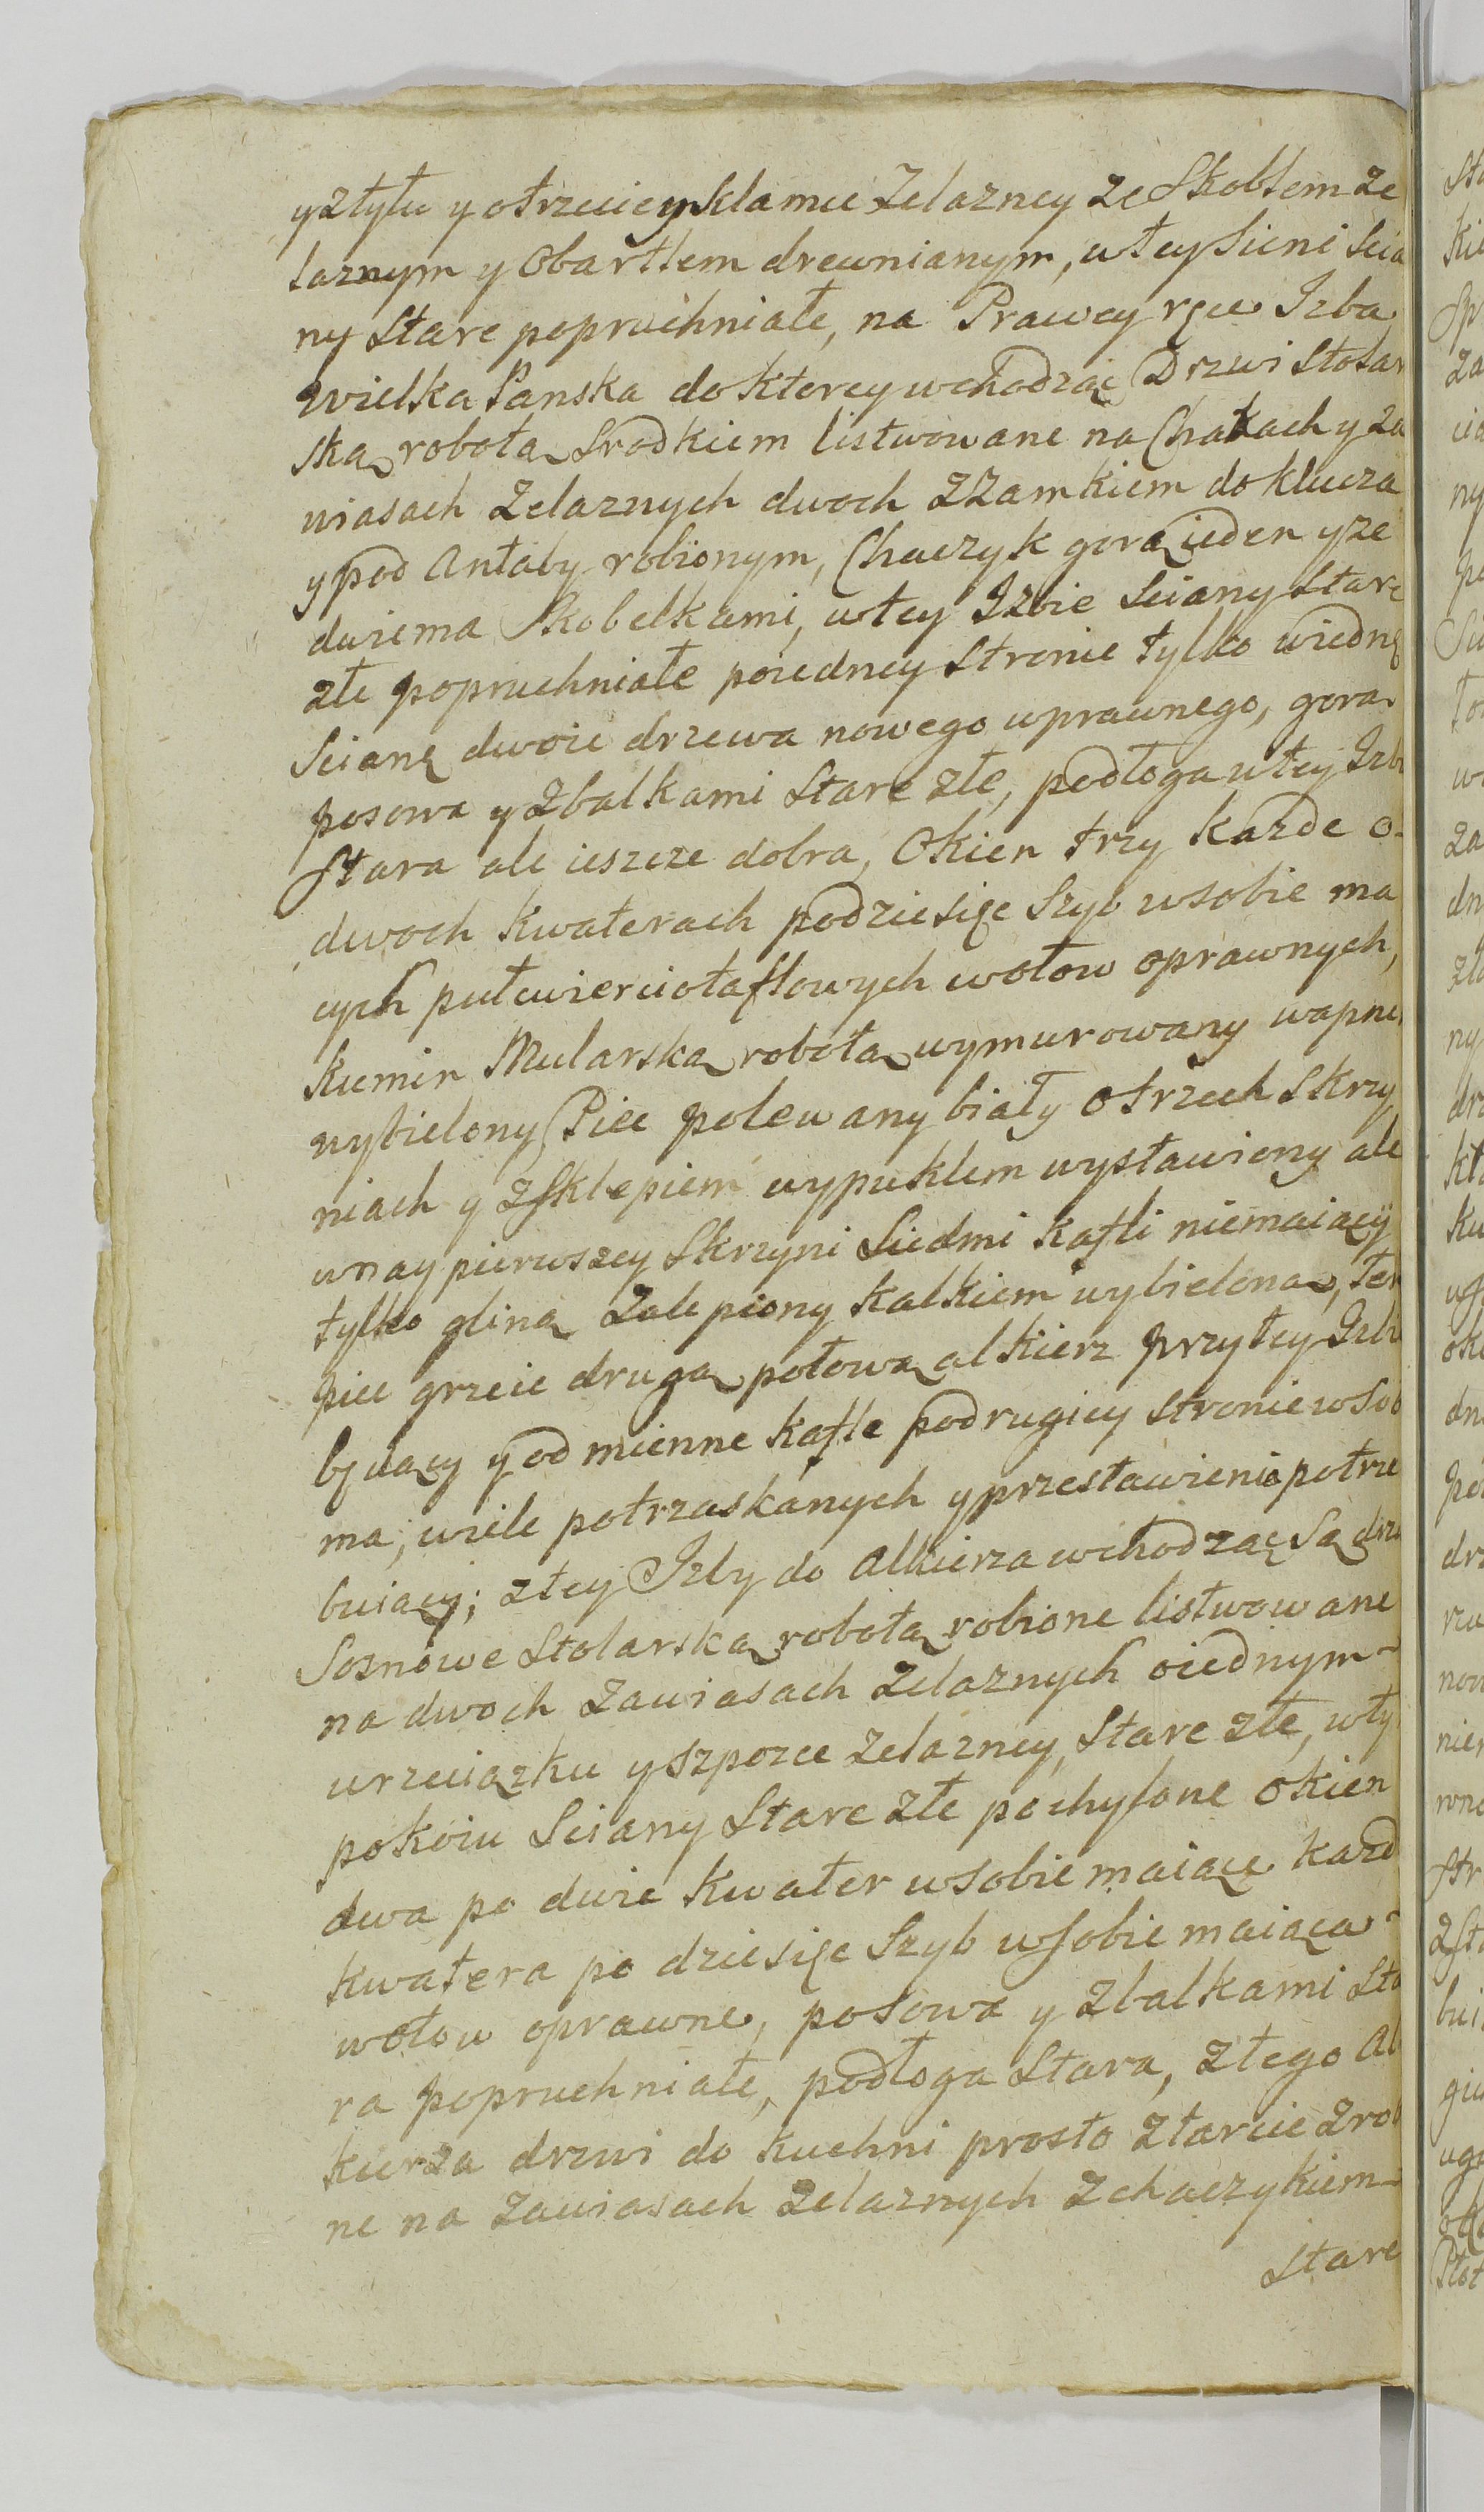 y ztyłu y otrzeciey Klamce Zelazney ze Skoblem ze
laznym y Obartlem drewnianym, wtey Sieni Scia
ny Stare popruchniałe, na Prawey ręce Izba
Wielka Panska do ktorey wchodząc Drzwi Stolar
ską robotą Srodkiem listwowane na Chakach y za
wiasach Zelaznych dwoch z Zamkiem do klucza
y pod Antaby robionym, Chaczyk gorą ieden y ze
dwiema Skobelkami, wtey Izbie Sciany Stare
złe popruchniałe poiedney Stronie tylko wiedną
Scianę dwoie drzewa nowego wprawnego, gora
posowa y zbalkami Stare złe, podłoga wtey Izbi
Stara ale ieszcze dobra, Okien trzy Kazde o
dwoch Kwaterach podziesięc Szyb wsobie ma
cych pułcwierciotaflowych wołow oprawnych,
Kumin Mularską robotą wymurowany wapne
wybielony Piec polewany biały otrzech Skrzy
niach y zsklepiem wypuklem wystawiony ale
wnaypierwszey Skrzyni Siedmi kafli niemaiący
tylko gliną Zalepiony kalkiem wybieloną, ten
piec grzeie drugą połową alkierz przytey Izbi
będący y odmienne kafle podrugiey stronie wsob
ma, wiele potrzaskanych y przestawienia potrze
buiący; ztey Izby do Alkierza wchodząc Są drz
Sosnowe Stolarską robotą robione listwowane
na dwoch Zawiasach Zelaznych oiednym
wrzeciązku y Szpozce Zelazney, Stare złe, wty
pokoiu Sciany Stare złe pochyłone okien
dwa po dwie Kwater wsobie maiące kazd
kwatera po dziesięc Szyb wsobie maiąca
wołow oprawne, posowa y zbalkami Sta
ra popruchniałe, podłoga Stara, z tego Al
kierza drzwi do kuchni prosto ztarcic zrob
ne na Zawiasach Zelaznych zchaczykiem
Stare